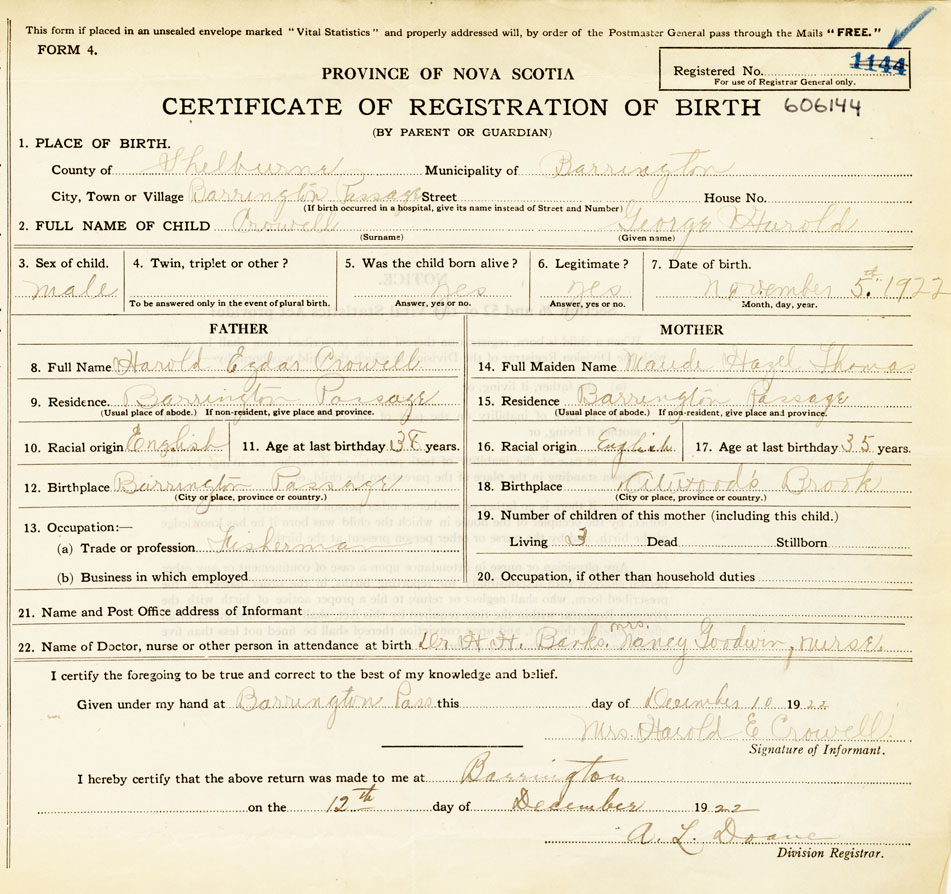 This form if placed in an unsealed envelope marked "Vital Statistics" and properly addressed will, by order of the Postmaster General pass through the Mails "FREE."
FORM 4.
PROVINCE OF NOVA SCOTIA
Registered No. 1144
For use of Registrar General only.
CERTIFICATE OF REGISTRATION OF BIRTH 606144
(BY PARENT OR GUARDIAN)
1. PLACE OF BIRTH.
County of Shelburne Municipality of Barrington
City, Town or Village Barrington Passage Street House No.
(If birth occurred in a hospital, give its name instead of Street and Number)
2. FULL NAME OF CHILD Crowell George Harold
(Surname) (Given name)
3. Sex of child. 4. Twin, triplet or other? 5. Was the child born alive? 6. Legitimate? 7. Date of birth.
male yes yes November 5th. 1922
To be answered only in the event of plural birth. Answer, yes or no. Answer, yes or no. Month, day, year.
FATHER MOTHER
8. Full Name Harold Egdar Crowell 14. Full Maiden Name Maude Hazel Thomas
9. Residence. Barrington Passage 15. Residence Barrington Passage
(Usual place of abode.) If non-resident, give place and province. (Usual place of abode.) If non-resident, give place and province.
10. Racial origin English 11. Age at last birthday 38 years. 16. Racial origin English 17. Age at last birthday 35 years.
12. Birthplace Barrington Passage 18. Birthplace Atwoods Brook
(City or place, province or country.) (City or place, province or country.)
13. Occupation:— 19. Number of children of this mother (including this child.)
(a) Trade or profession Fisherman Living 3 Dead Stillborn
(b) Business in which employed 20. Occupation, if other than household duties
21. Name and Post Office address of Informant
22. Name of Doctor, nurse or other person in attendance at birth Dr H. H. Banks. Mrs. Nancy Goodwin, nurse.
I certify the foregoing to be true and correct to the best of my knowledge and belief.
Given under my hand at Barrington Pass this day of December 10 1922
Mrs. Harold E Crowell
Signature of Informant.
I hereby certify that the above return was made to me at Barrington
on the 12th day of December 1922
A. L. Doane
Division Registrar.